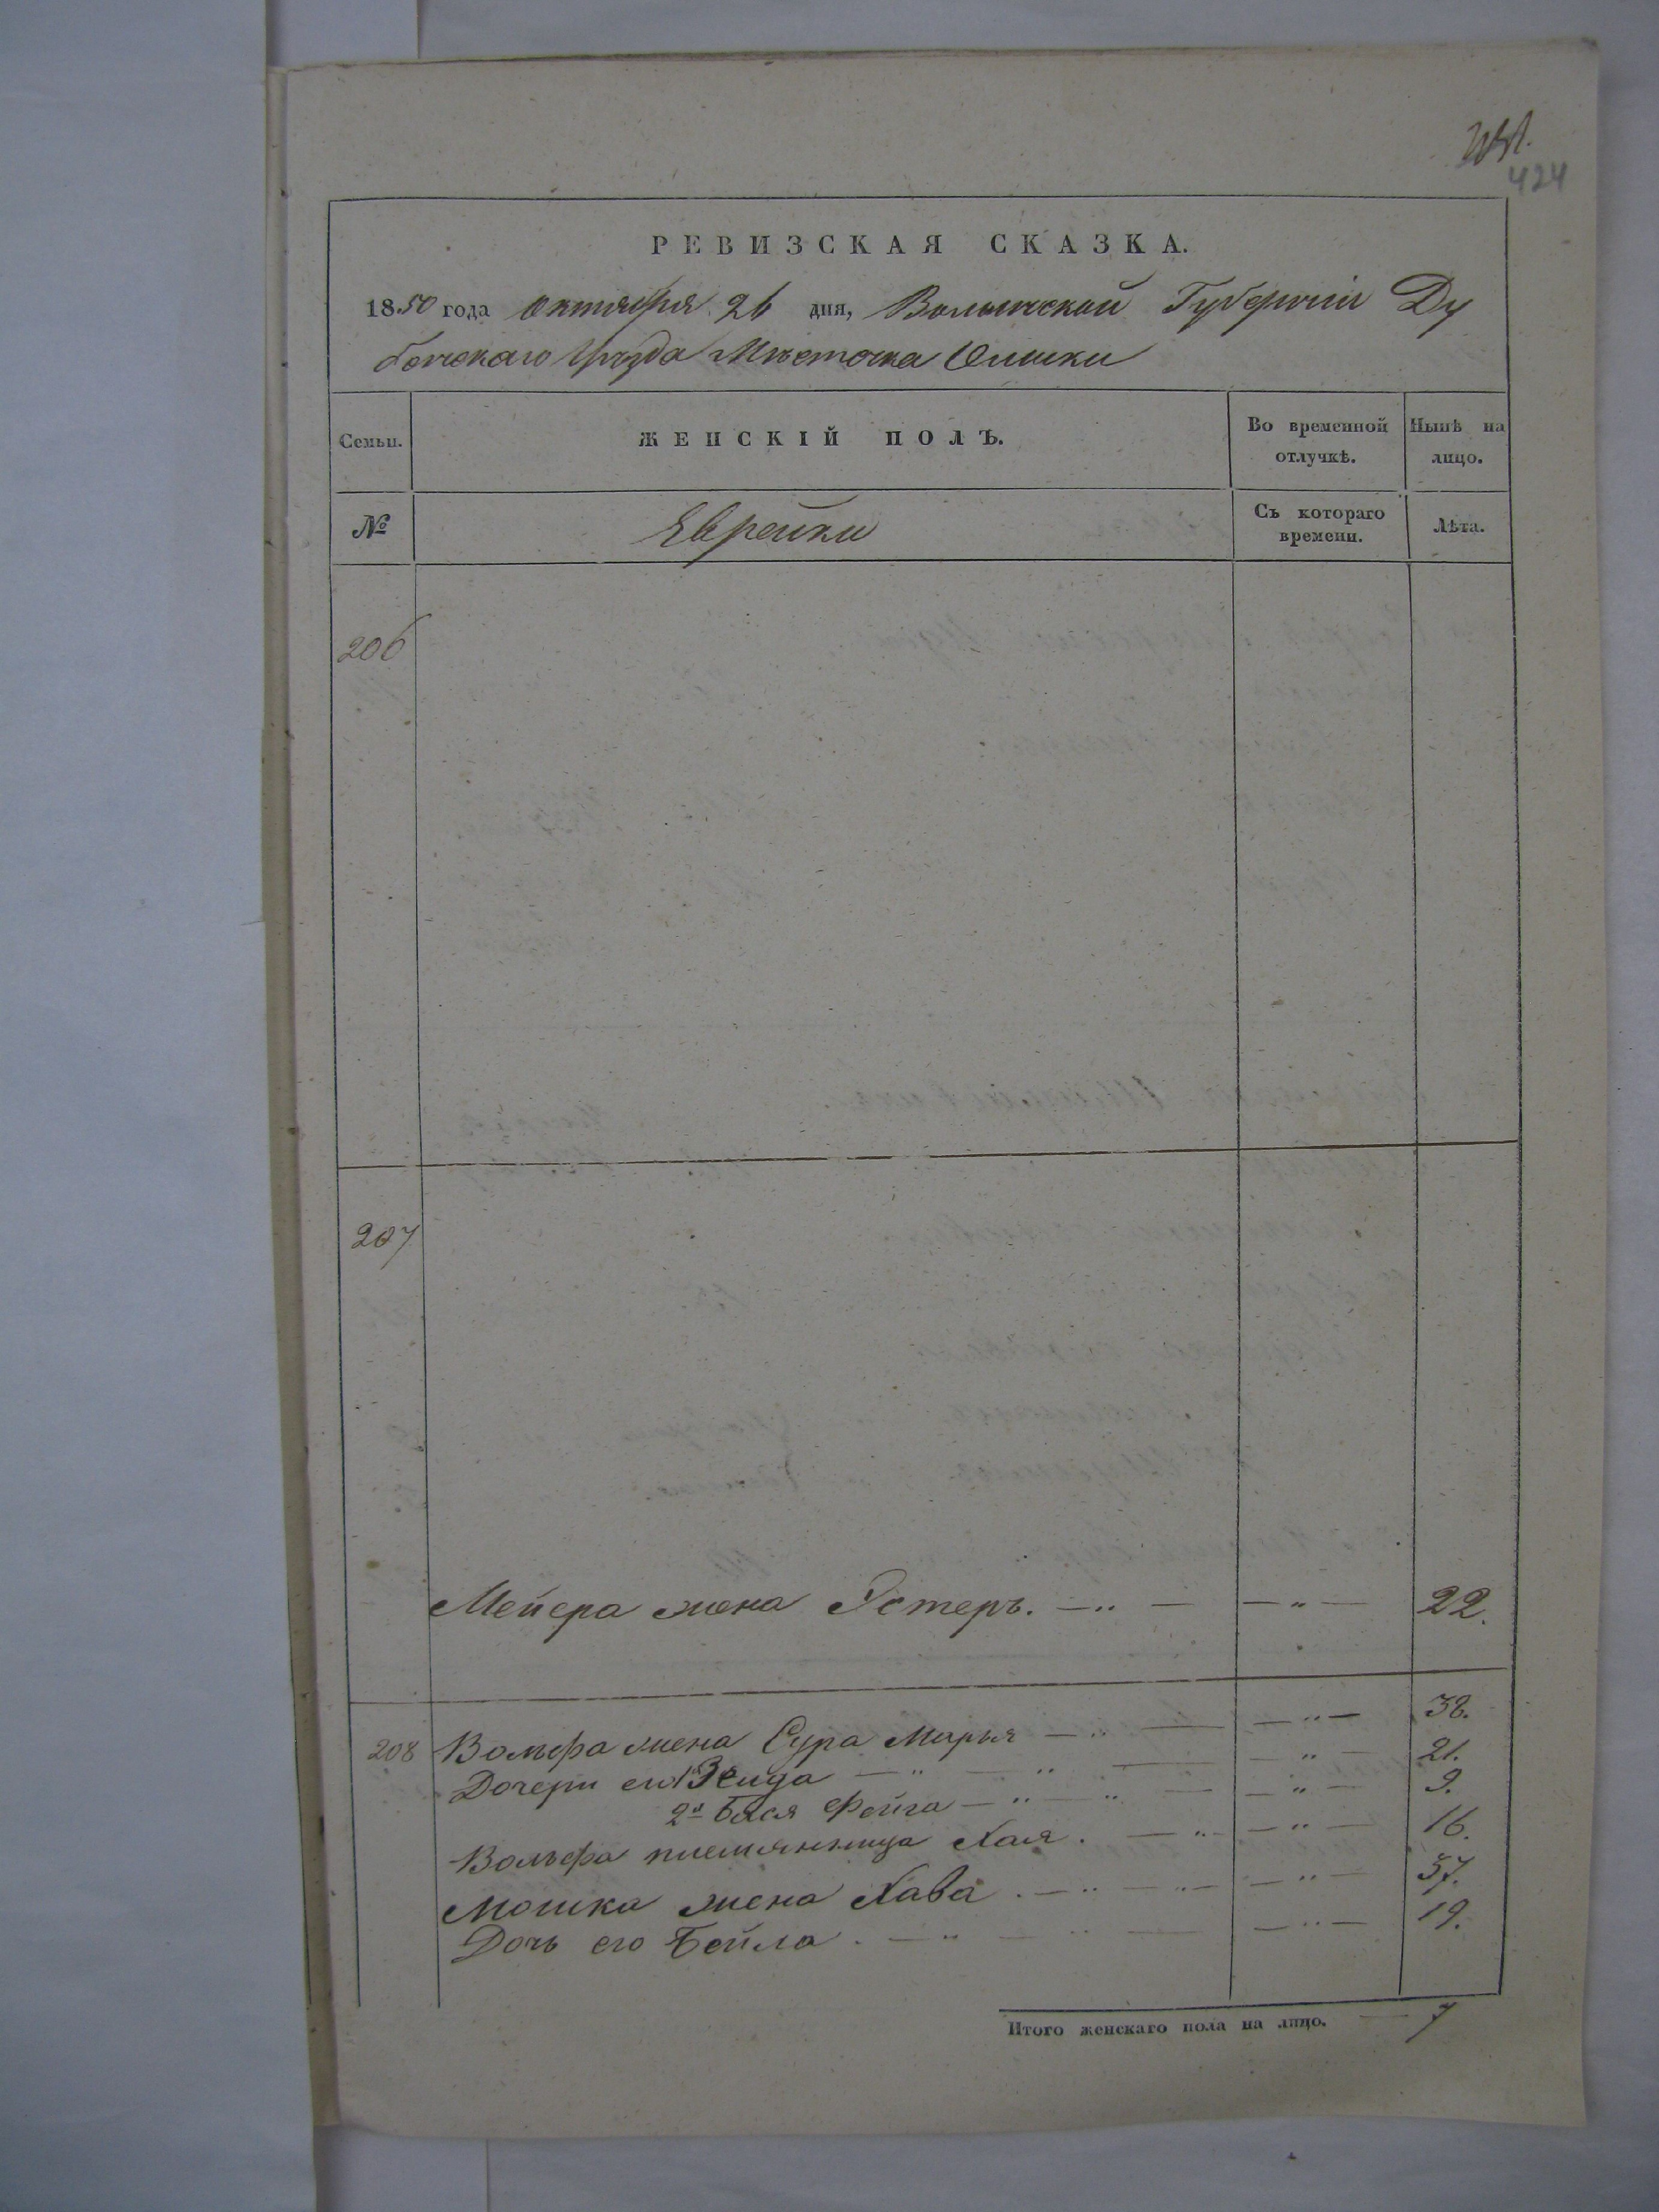 424
РЕВИЗСКАЯ СКАЗКА.
1850 года Октября 26 дня, Волынской Губерніи Ду
бенскаго Уѣзда Мѣстечка Олыки
Семьи. ЖЕНСКІЙ ПОЛЪ. Во временной отлучкѣ. Нынѣ на лицо.
№ Еврейки Съ котораго времени. Лѣта.
206
207
Мейера жена Эстеръ. — „ — — „ — 22.
208 Вольфа жена Сура Марья — „ — — „ — 38.
Дочери его 1я Зенда — „ — „ — — „ — 21.
2я Бася Фейга — „ — „ — — „ — 9.
Вольфа племянница Хая. — „ — — „ — 16.
Мошка жена Хава. — „ — „ — — „ — 37.
Дочь его Бейла. — „ — „ — — „ — 19.
Итого женскаго пола на лицо. — 7